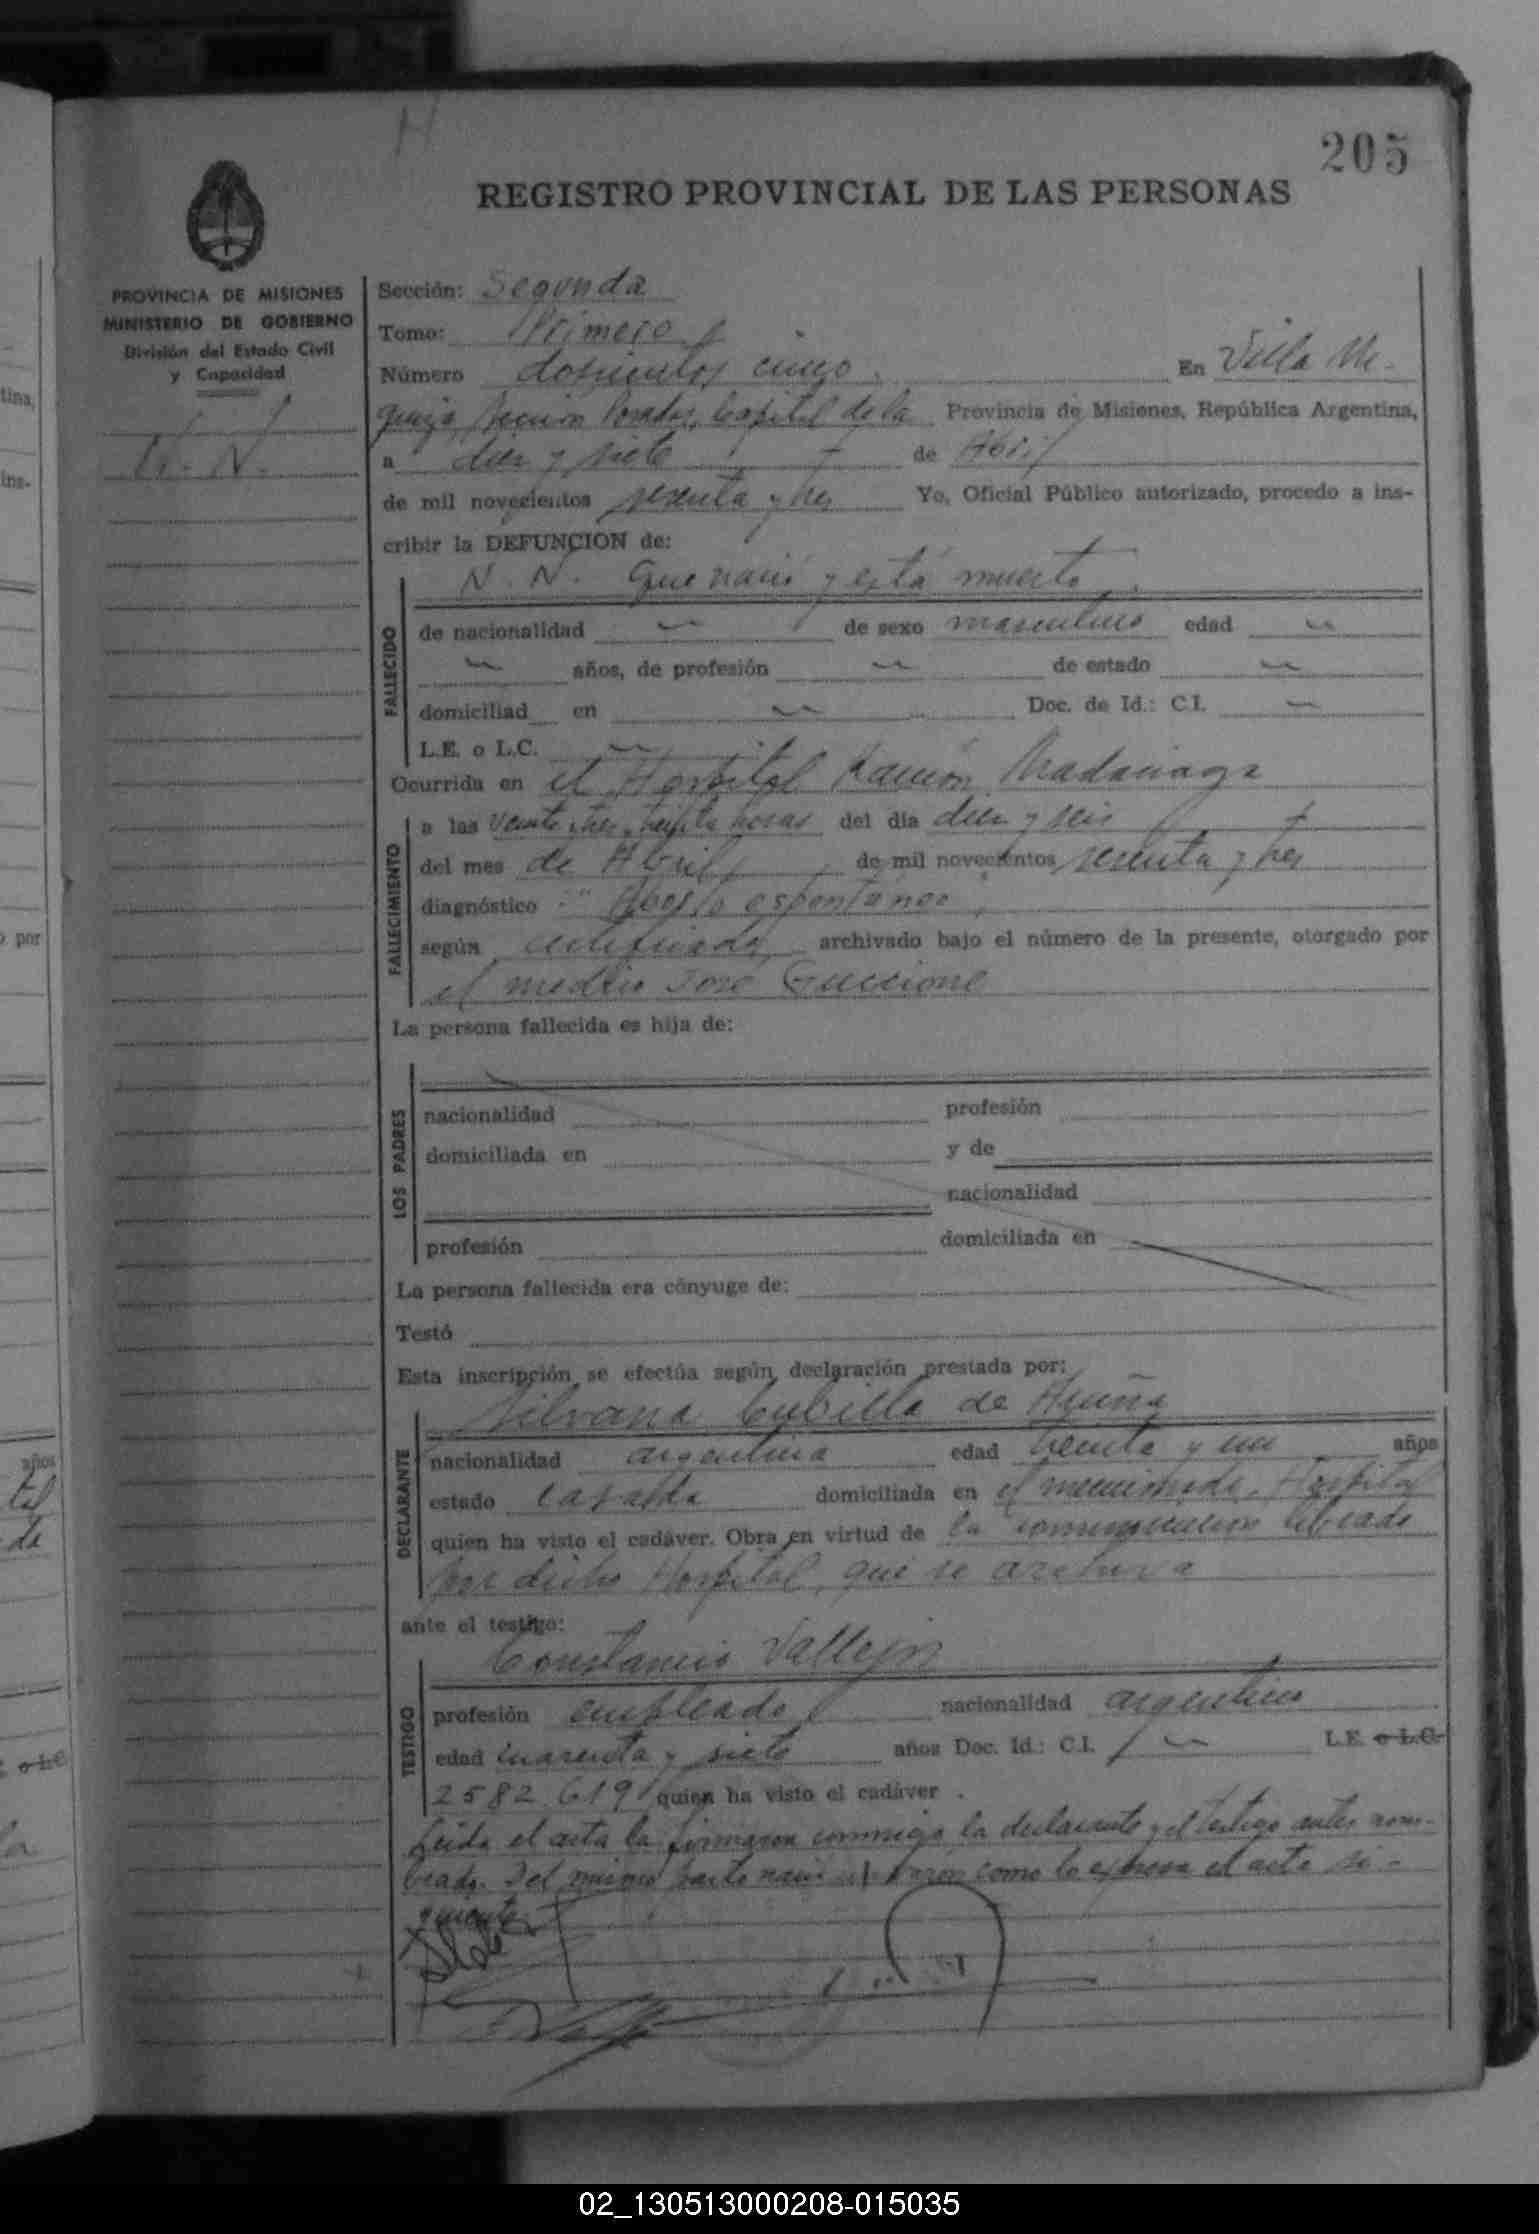 205
REGISTRO PROVINCIAL DE LAS PERSONAS
PROVINCIA DE MISIONES
MINISTERIO DE GOBIERNO
División del Estado Civil
y Capacidad
N. N.
Sección: Segunda
Tomo: Primero
Número doscientos cinco. En Villa Ur-
quiza, Sección Posadas, Capital de la Provincia de Misiones, República Argentina,
a diez y siete de Abril
de mil novecientos sesenta y tres Yo, Oficial Público autorizado, procedo a ins-
cribir la DEFUNCION de:
N. N. Que nació y está muerto
FALLECIDO
de nacionalidad de sexo masculino edad
años, de profesión de estado
domiciliad en Doc. de Id.: C.I.
L.E. o L.C.
Ocurrida en el Hospital Ramón Madariaga
FALLECIMIENTO
a las veinte tres y treinta horas del día diez y seis
del mes de Abril de mil novecientos sesenta y tres
diagnóstico : " Aborto espontáneo
según certificado archivado bajo el número de la presente, otorgado por
el médico José Guccione
La persona fallecida es hija de:
LOS PADRES
nacionalidad profesión
domiciliada en y de
nacionalidad
profesión domiciliada en
La persona fallecida era cónyuge de:
Testó
Esta inscripción se efectúa según declaración prestada por:
Silvana Cubilla de Acuña
DECLARANTE
nacionalidad argentina edad treinta y un años
estado casada domiciliada en el mencionado Hospital
quien ha visto el cadáver. Obra en virtud de la comunicación librada
por dicho Hospital, que se archiva
ante el testigo:
Constancio Vallejos
TESTIGO
profesión empleado nacionalidad argentino
edad cuarenta y siete años Doc. Id.: C.I. L.E. o L.C.
2582.619 quien ha visto el cadáver .
Leída el acta la firmaron conmigo la declarante y el testigo antes nom-
brado. Del mismo parto nació un varón como lo expresa el acta si-
guiente.
02_130513000208-015035